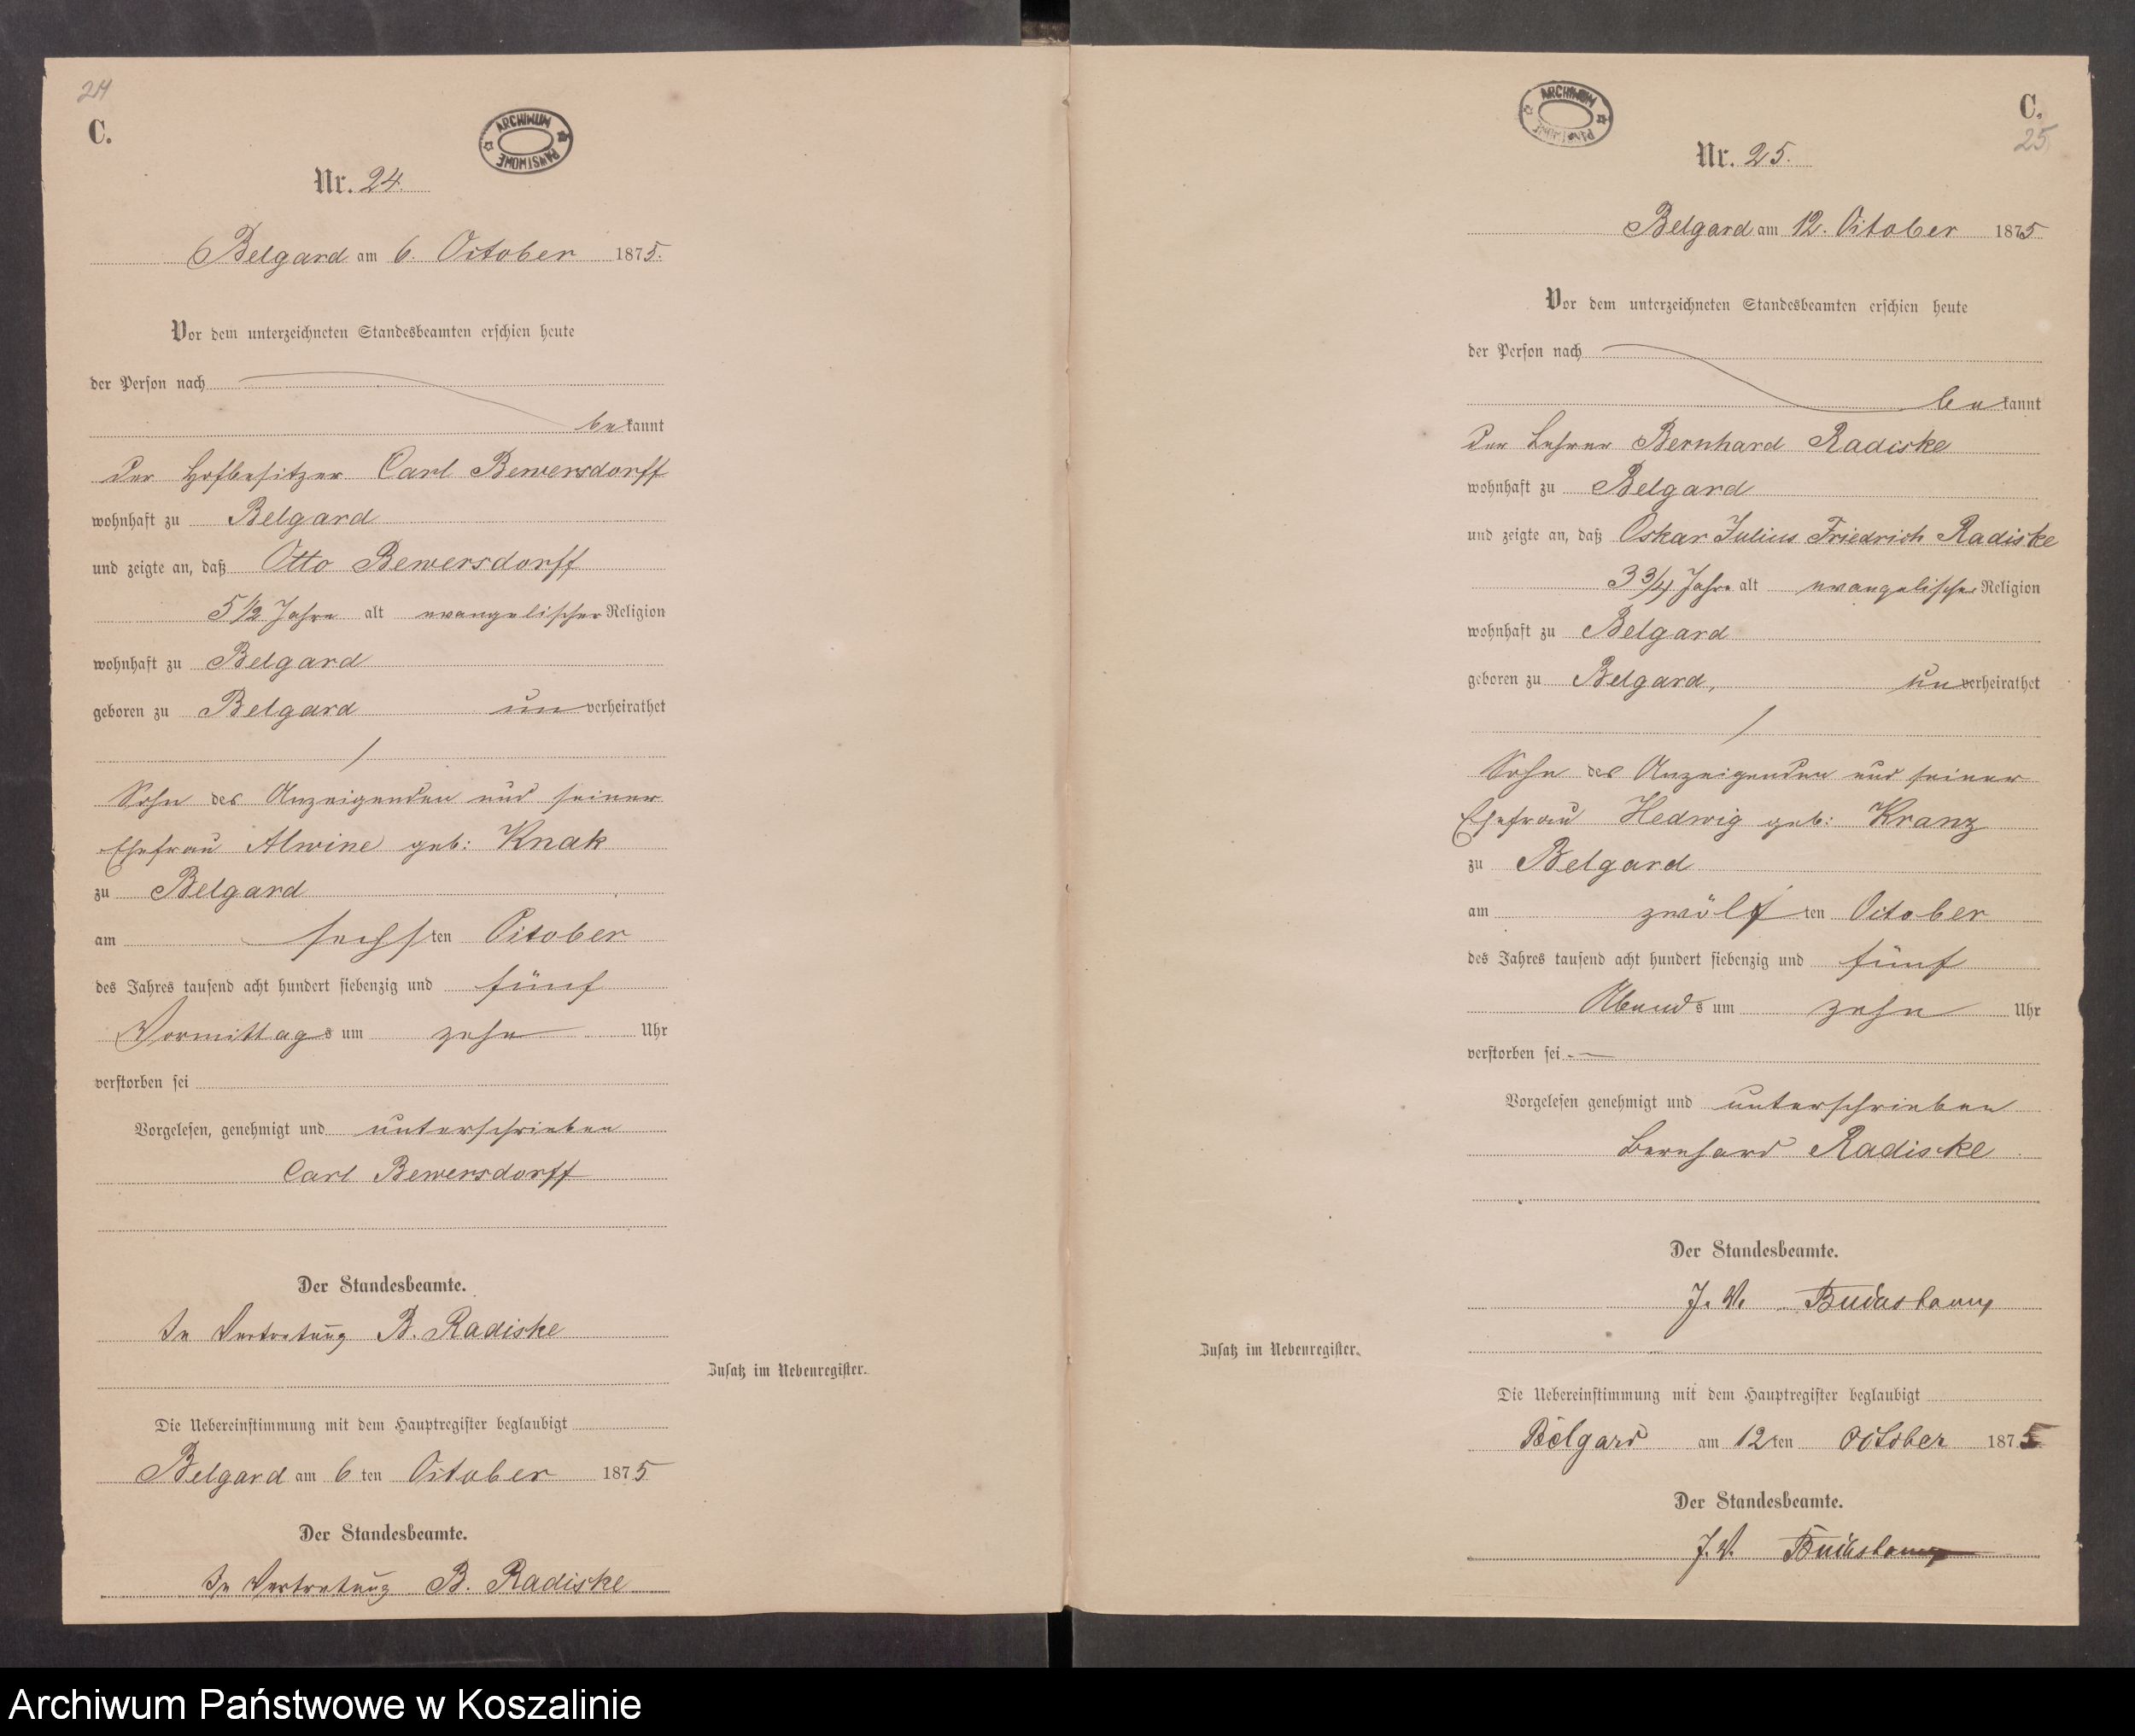 24
C.
ARCHIWUM PAŃSTWOWE
Nr. 24.
Belgard am 6. October 1875.
Vor dem unterzeichneten Standesbeamten erschien heute
der Person nach
bekannt
Der Hofbesitzer Carl Bewersdorff
wohnhaft zu Belgard
und zeigte an, daß Otto Bewersdorff
5 1/2 Jahre alt evangelischer Religion
wohnhaft zu Belgard
geboren zu Belgard unverheirathet
/
Sohn des Anzeigenden und seiner
Ehefrau Alwine geb: Knak
zu Belgard
am sechsten October
des Jahres tausend acht hundert siebenzig und fünf
Vormittags um zehn Uhr
verstorben sei
Vorgelesen, genehmigt und unterschrieben
Carl Bewersdorff
Der Standesbeamte.
In Vertretung B. Radiske
Zusatz im Nebenregister.
Die Uebereinstimmung mit dem Hauptregister beglaubigt
Belgard am 6ten October 1875
Der Standesbeamte.
In Vertretung B. Radiske
ARCHIWUM PAŃSTWOWE
C.
25.
Nr. 25.
Belgard am 12. October 1875
Vor dem unterzeichneten Standesbeamten erschien heute
der Person nach
bekannt
Der Lehrer Bernhard Radiske
wohnhaft zu Belgard
und zeigte an, daß Oskar Julius Friedrich Radiske
3 3/4 Jahre alt evangelischer Religion
wohnhaft zu Belgard
geboren zu Belgard, unverheirathet
/
Sohn des Anzeigenden und seiner
Ehefrau Hedwig geb: Kranz
zu Belgard
am zwölften October
des Jahres tausend acht hundert siebenzig und fünf
Abends um zehn Uhr
verstorben sei -—
Vorgelesen genehmigt und unterschrieben
Bernhard Radiske
Der Standesbeamte.
J. V.
Zusatz im Nebenregister.
Die Uebereinstimmung mit dem Hauptregister beglaubigt
Belgard am 12ten October 1875
Der Standesbeamte.
J. V.
Archiwum Państwowe w Koszalinie